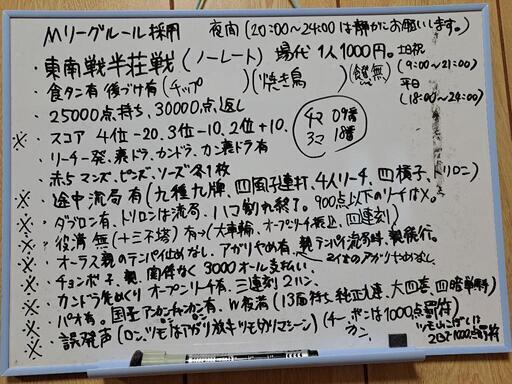 Mリーグルール採用 夜間(20:00〜24:00は静かにお願いします。)
・東南戦半荘戦(ノーレート) 場代 1人1000円。土日祝(9:00〜21:00)
平日(18:00〜24:00)
・食タン有 後づけ有(チップ )(焼き鳥 )
・25000点持ち、30000点返し
※ スコア 4位-20.3位-10.2位+10.
4マ 09番
3マ 18番
・リーチ一発、裏ドラ、カンドラ、カン裏ドラ有
・赤5マンズ、ピンズ、ソーズ各1枚
※ 途中流局有(九種九牌、四風子連打、4人リーチ、四槓子、トリロン)
※ ダブロン有、トリロンは流局、ハコ割れ終了。900点以下のリーチはX。
※ 役満 無(十三不塔)有→(大車輪、オープンリーチ振込、四連刻)
※ オーラス親のテンパイ止めなし、アガリやめ有、親テンパイ流局時、親続行。
2位のアガリやめなし
※ チョンボ 子、親、関係なく 3000オール支払い。
※ カンドラ先めくり オープンリーチ有、三連刻 2ハン
※ パオ有。国士アンカンチャンカン有、W役満(13面待ち、純正九連、大四喜、四暗単騎)
※ 誤発声(ロン、ツモはアガリ放キツモ切リマシーン)(チー、ポン、カン、は1000点罰符)